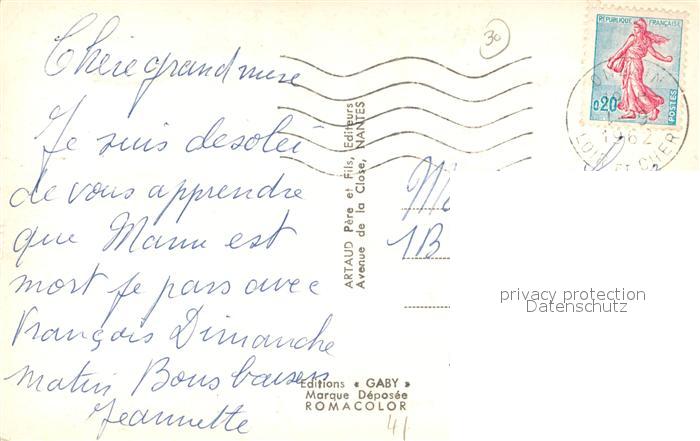 Chère grand mère
Je suis désolée
de vous apprendre
que Manu est
mort je pars avec
François Dimanche
matin Bons baisers
Jeannette
30
ARTAUD Père et Fils, Editeurs
Avenue de la Close, NANTES
REPUBLIQUE FRANÇAISE
0,20
POSTES
1962
LOIR ET CHER
1B
privacy protection
Datenschutz
Editions « GABY »
Marque Déposée
ROMACOLOR
41